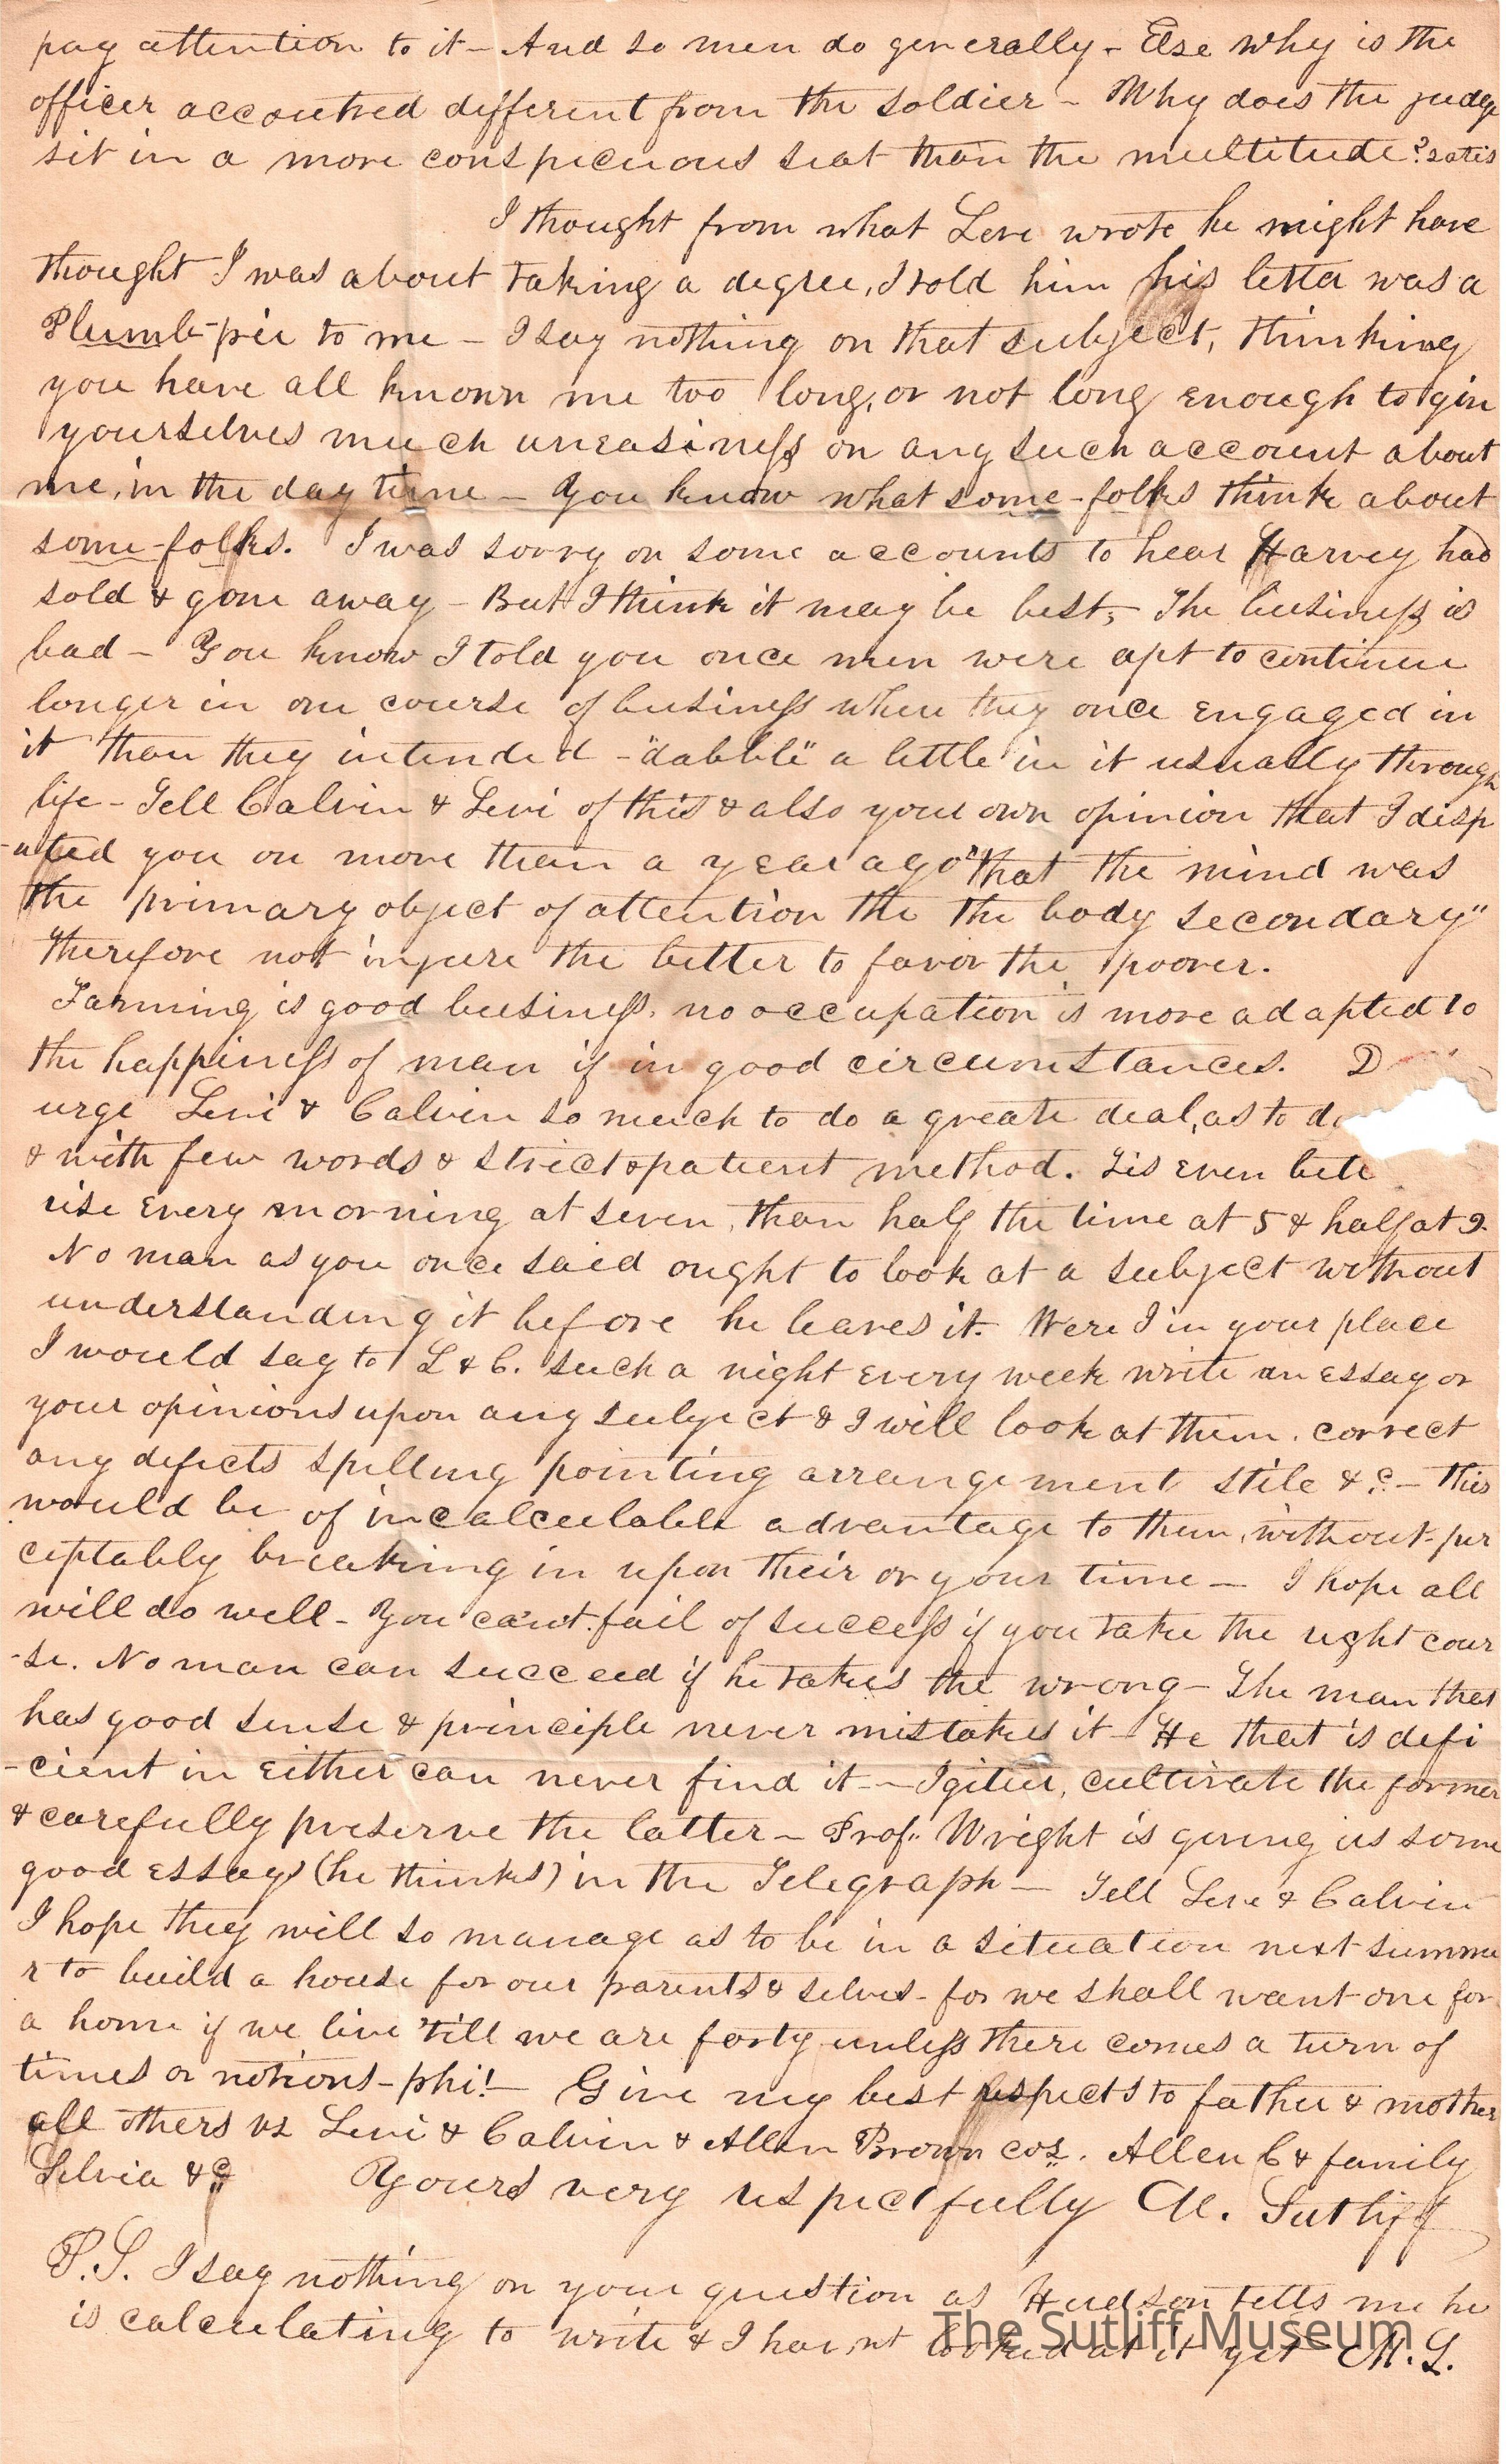 pay attention to it – And so men do generally – Else why is the
officer accoutred different from the soldier – Why does the judge
sit in a more conspicuous seat than the multitude? satis
I thought from what Levi wrote he might have
thought I was about taking a degree, I told him his letter was a
Plumb-pie to me – I say nothing on that subject, thinking
you have all known me too long, or not long enough to give
yourselves much uneasiness on any such account about
me, in the day time – You know what some-folks think about
some-folks. I was sorry on some accounts to hear Harvey had
sold & gone away – But I think it may be best, – The business is
bad – You know I told you once men were apt to continue
longer in one course of business when they once engaged in
it than they intended – "dabble" a little in it usually through
life – Tell Calvin & Levi of this & also your own opinion that I disp
-uted you on more than a year ago "that the mind was
the primary object of attention the the body secondary"
therefore not injure the better to favor the poorer.
Farming is good business, no occupation is more adapted to
the happiness of man if in good circumstances. D
urge Levi & Calvin so much to do a greate deal, as to do
& with few words & strict & patient method. Tis even bette
rise every morning at seven, than half the time at 5 & half at 9.
No man as you once said ought to look at a subject without
understanding it before he leaves it. Were I in your place
I would say to L & C. such a night every week write an essay or
your opinions upon any subject & I will look at them, correct
any defects spelling pointing arrangement stile &c. – this
would be of incalculable advantage to them, without per
ceptably breaking in upon their or your time – I hope all
will do well – You can't fail of success if you take the right cour
-se. No man can succeed if he takes the wrong – The man that
has good sense & principle never mistakes it – He that is defi
-cient in either can never find it – Igitur, cultivate the former
& carefully preserve the latter – Prof. Wright is giving us some
good essays (he thinks) in the Telegraph – Tell Levi & Calvin
I hope they will so manage as to be in a situation next summe
r to build a house for our parents & selves – for we shall want one for
a home if we live 'till we are forty unless there comes a turn of
times or notions – phi! – Give my best respects to father & mother
all others vz Levi & Calvin & Allen Brown cos. Allen C & family
Selvia &c
Yours very respectfully M. Sutliff
P.S. I say nothing on your question as Hudson tells me he
is calculating to write & I have nt looked at it yet M. S.
The Sutliff Museum